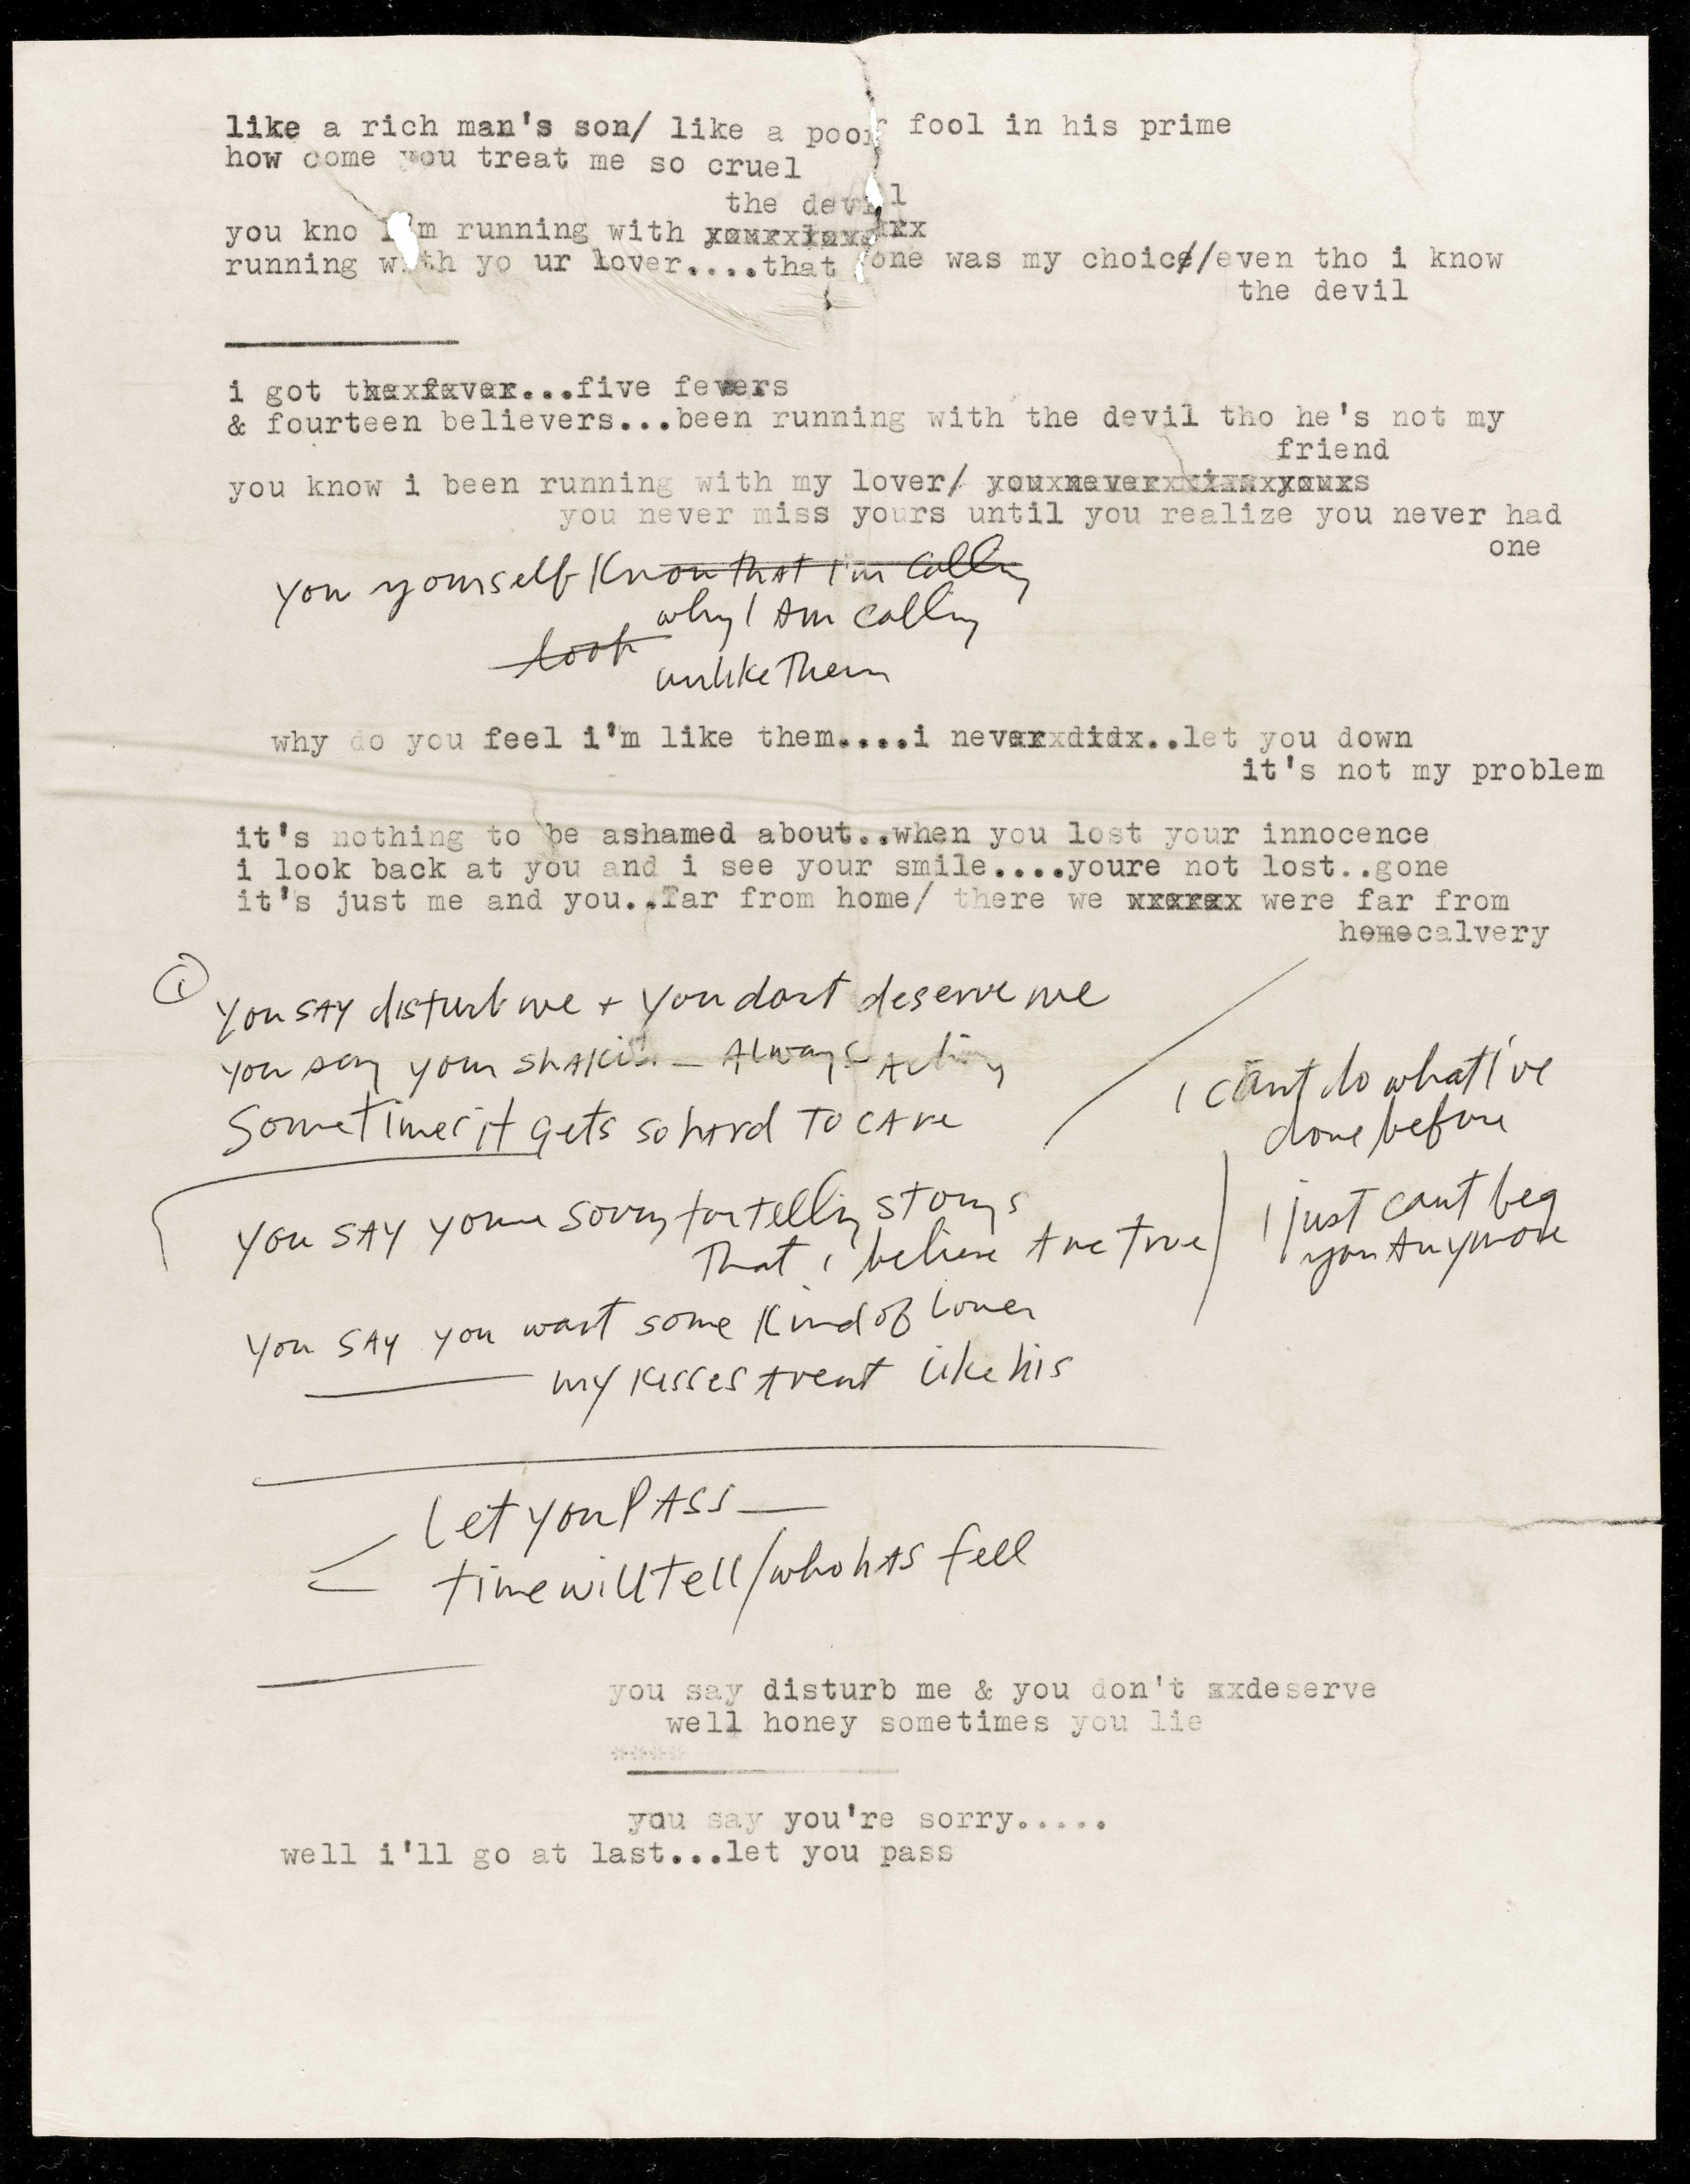 like a rich man's son/ like a poor fool in his prime
how come you treat me so cruel
the devil
you kno I'm running with
running with yo ur lover....that one was my choice//even tho i know
the devil
i got the fever...five fevers
& fourteen believers...been running with the devil tho he's not my
friend
you know i been running with my lover/ you never miss yours
you never miss yours until you realize you never had
one
You yourself Know that i'm calling
why I Am calling
look
unlike Them
why do you feel i'm like them....i never did..let you down
it's not my problem
it's nothing to be ashamed about..when you lost your innocence
i look back at you and i see your smile....youre not lost..gone
it's just me and you..far from home/ there we were far from
homecalvery
1
You SAY disturb me + you dont deserve me
You say your shakin — Always Acting
Sometimes it gets so hard To cAre
i can't do what I've
done before
You SAY youre sorry for telling storys
That i believe Are True
i just can't beg
you Anymore
You SAY you want some Kind of lover
my kisses Arent like his
Let you PASS —
time will tell/who hAs fell
you say disturb me & you don't xxdeserve
well honey sometimes you lie
****
you say you're sorry.....
well i'll go at last...let you pass